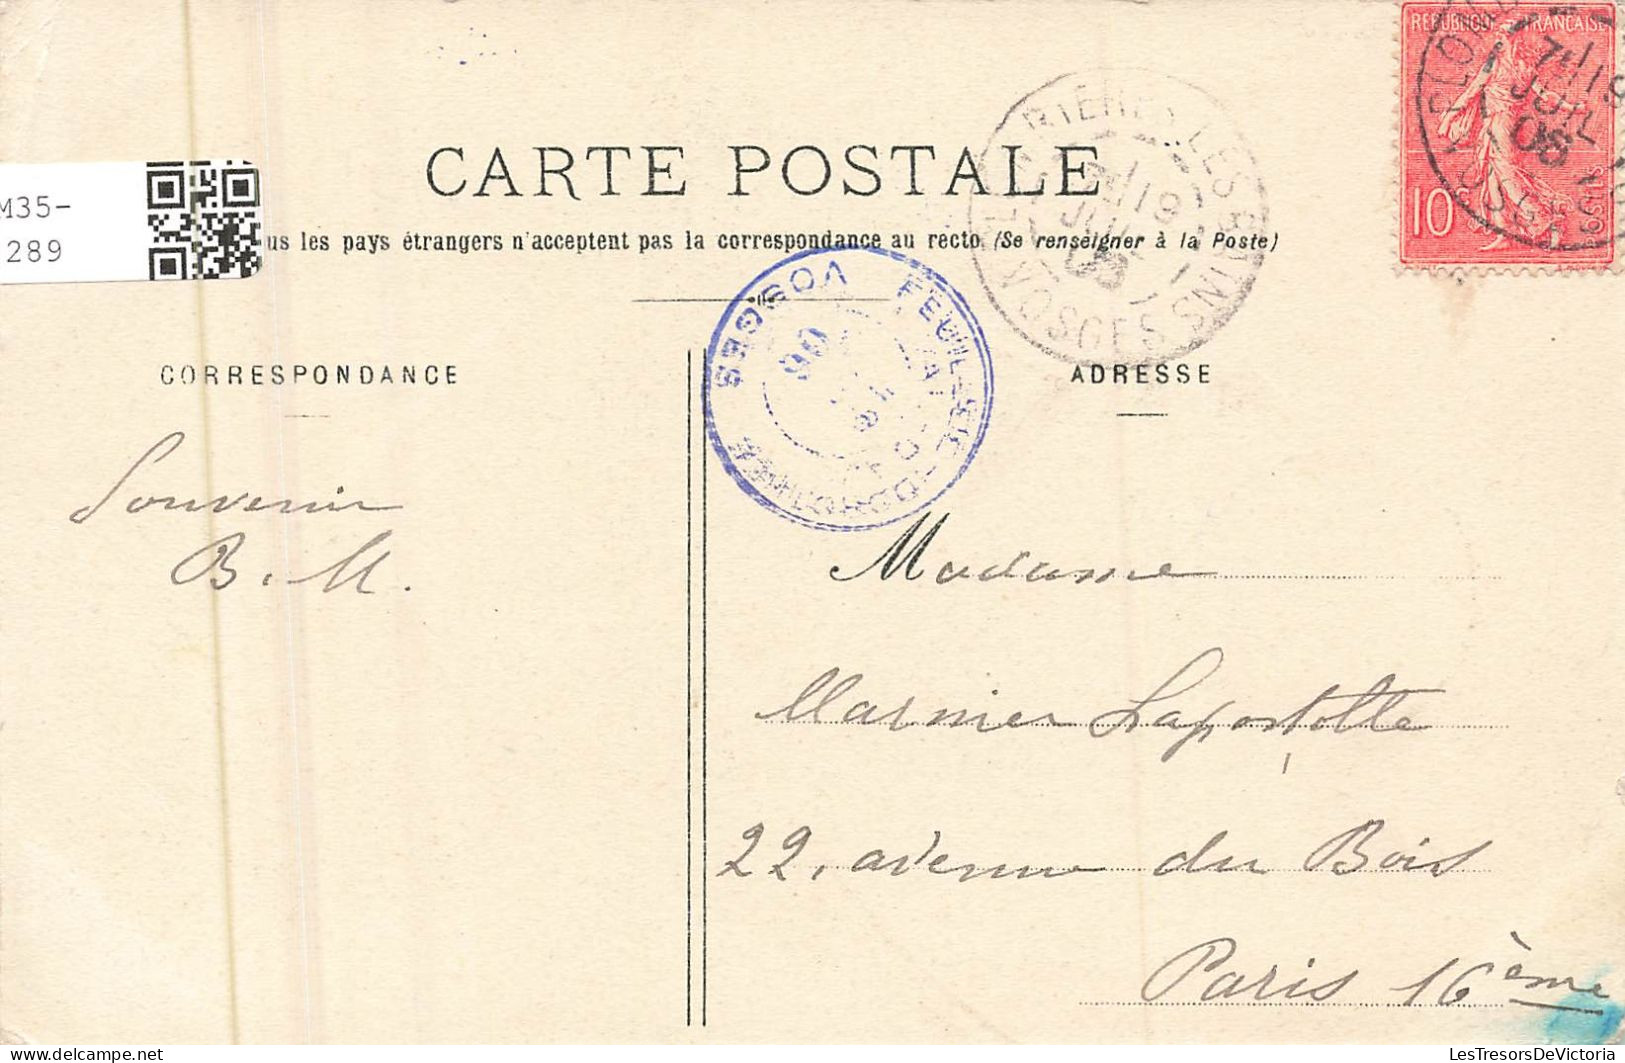 RÉPUBLIQUE FRANÇAISE
10c POSTES
M35-
289
CARTE POSTALE
us les pays étrangers n'acceptent pas la correspondance au recto (Se renseigner à la Poste)
LES BAINS
VOSGES
19
JUIL
VOSGES
06
CORRESPONDANCE
ADRESSE
Souvenir
B. M.
Madame
Marnier Lapostolle
22, avenue du Bois
Paris 16ème
LesTresorsDeVictoria
delcampe.net